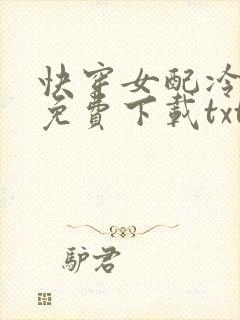 快穿女配冷
免費下載txt
驴君